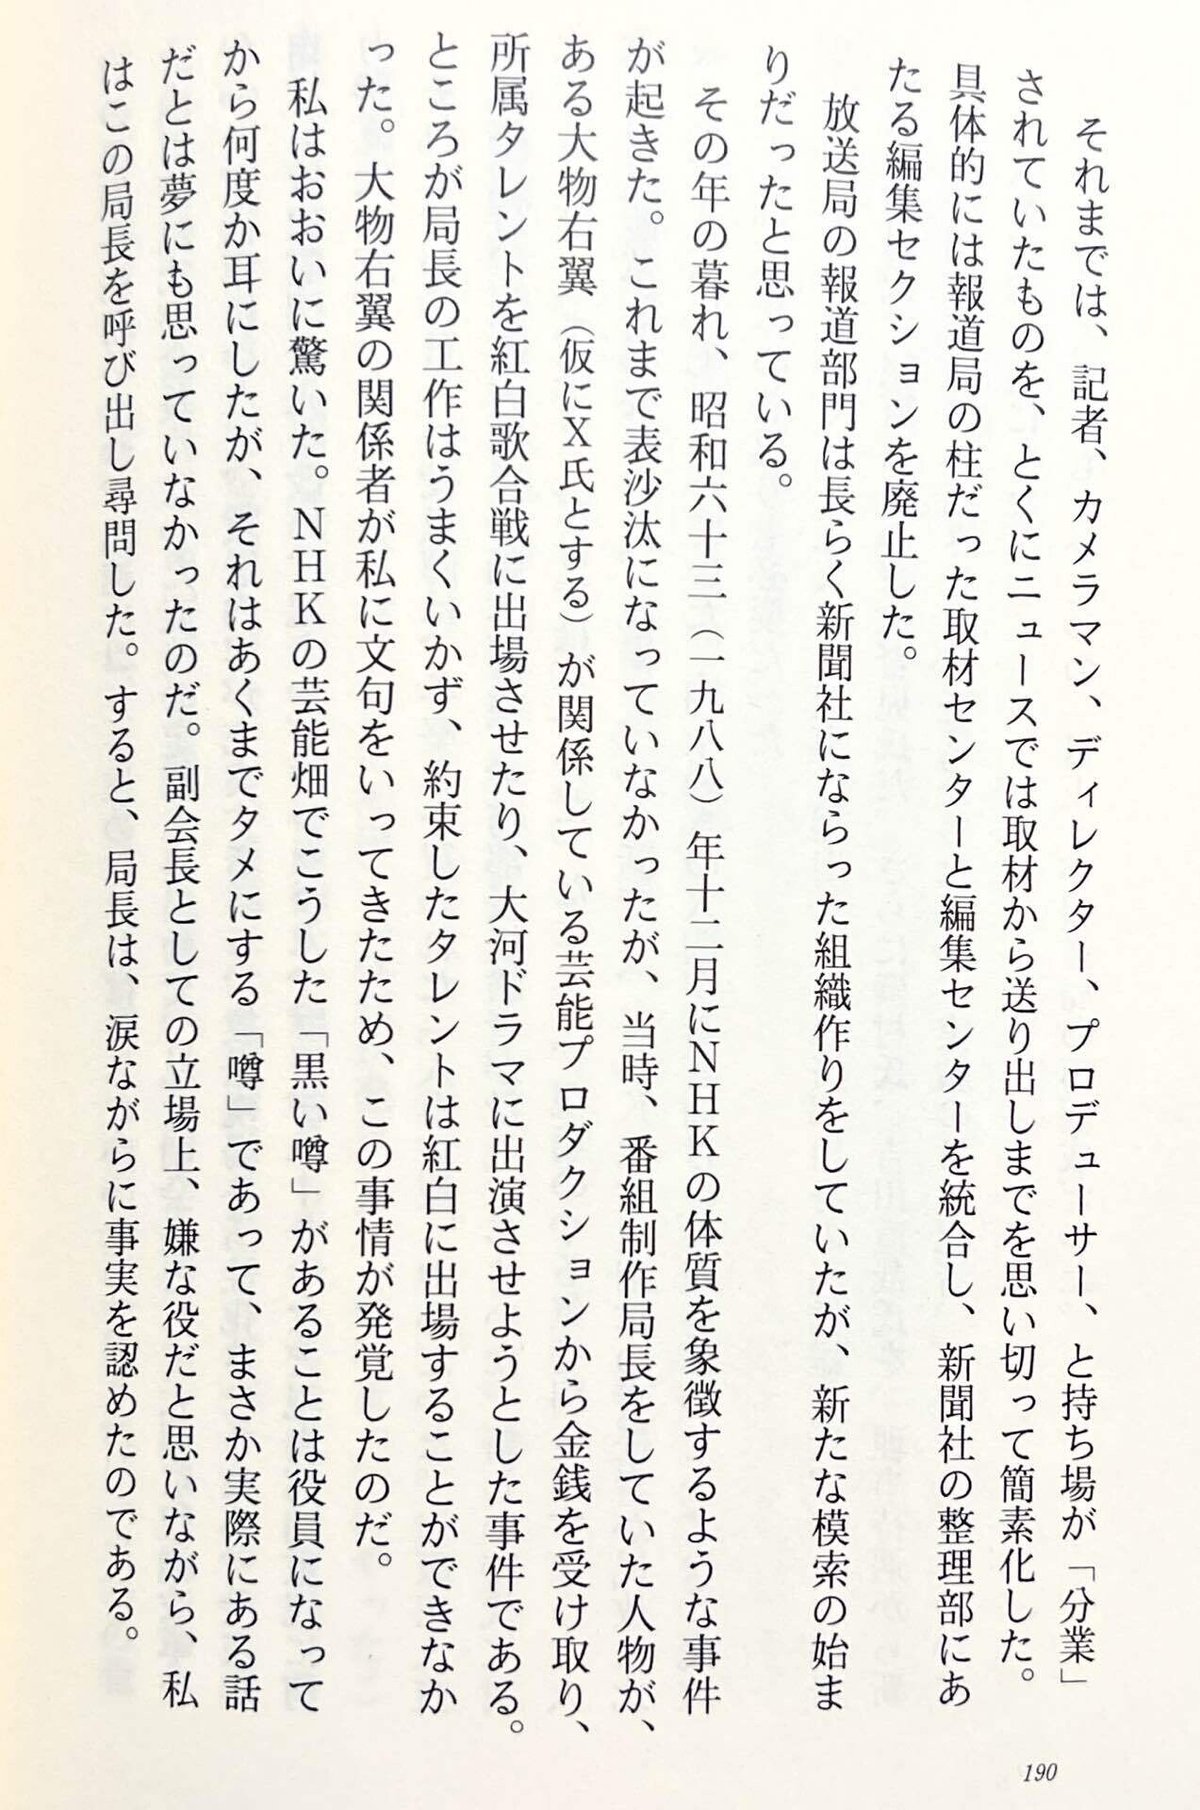 それまでは、記者、カメラマン、ディレクター、プロデューサー、と持ち場が「分業」
されていたものを、とくにニュースでは取材から送り出しまでを思い切って簡素化した。
具体的には報道局の柱だった取材センターと編集センターを統合し、新聞社の整理部にあ
たる編集セクションを廃止した。
放送局の報道部門は長らく新聞社にならった組織作りをしていたが、新たな模索の始ま
りだったと思っている。
その年の暮れ、昭和六十三（一九八八）年十二月にＮＨＫの体質を象徴するような事件
が起きた。これまで表沙汰になっていなかったが、当時、番組制作局長をしていた人物が、
ある大物右翼（仮にＸ氏とする）が関係している芸能プロダクションから金銭を受け取り、
所属タレントを紅白歌合戦に出場させたり、大河ドラマに出演させようとした事件である。
ところが局長の工作はうまくいかず、約束したタレントは紅白に出場することができなか
った。大物右翼の関係者が私に文句をいってきたため、この事情が発覚したのだ。
私はおおいに驚いた。ＮＨＫの芸能畑でこうした「黒い噂」があることは役員になって
から何度か耳にしたが、それはあくまでタメにする「噂」であって、まさか実際にある話
だとは夢にも思っていなかったのだ。副会長としての立場上、嫌な役だと思いながら、私
はこの局長を呼び出し尋問した。すると、局長は、涙ながらに事実を認めたのである。
190